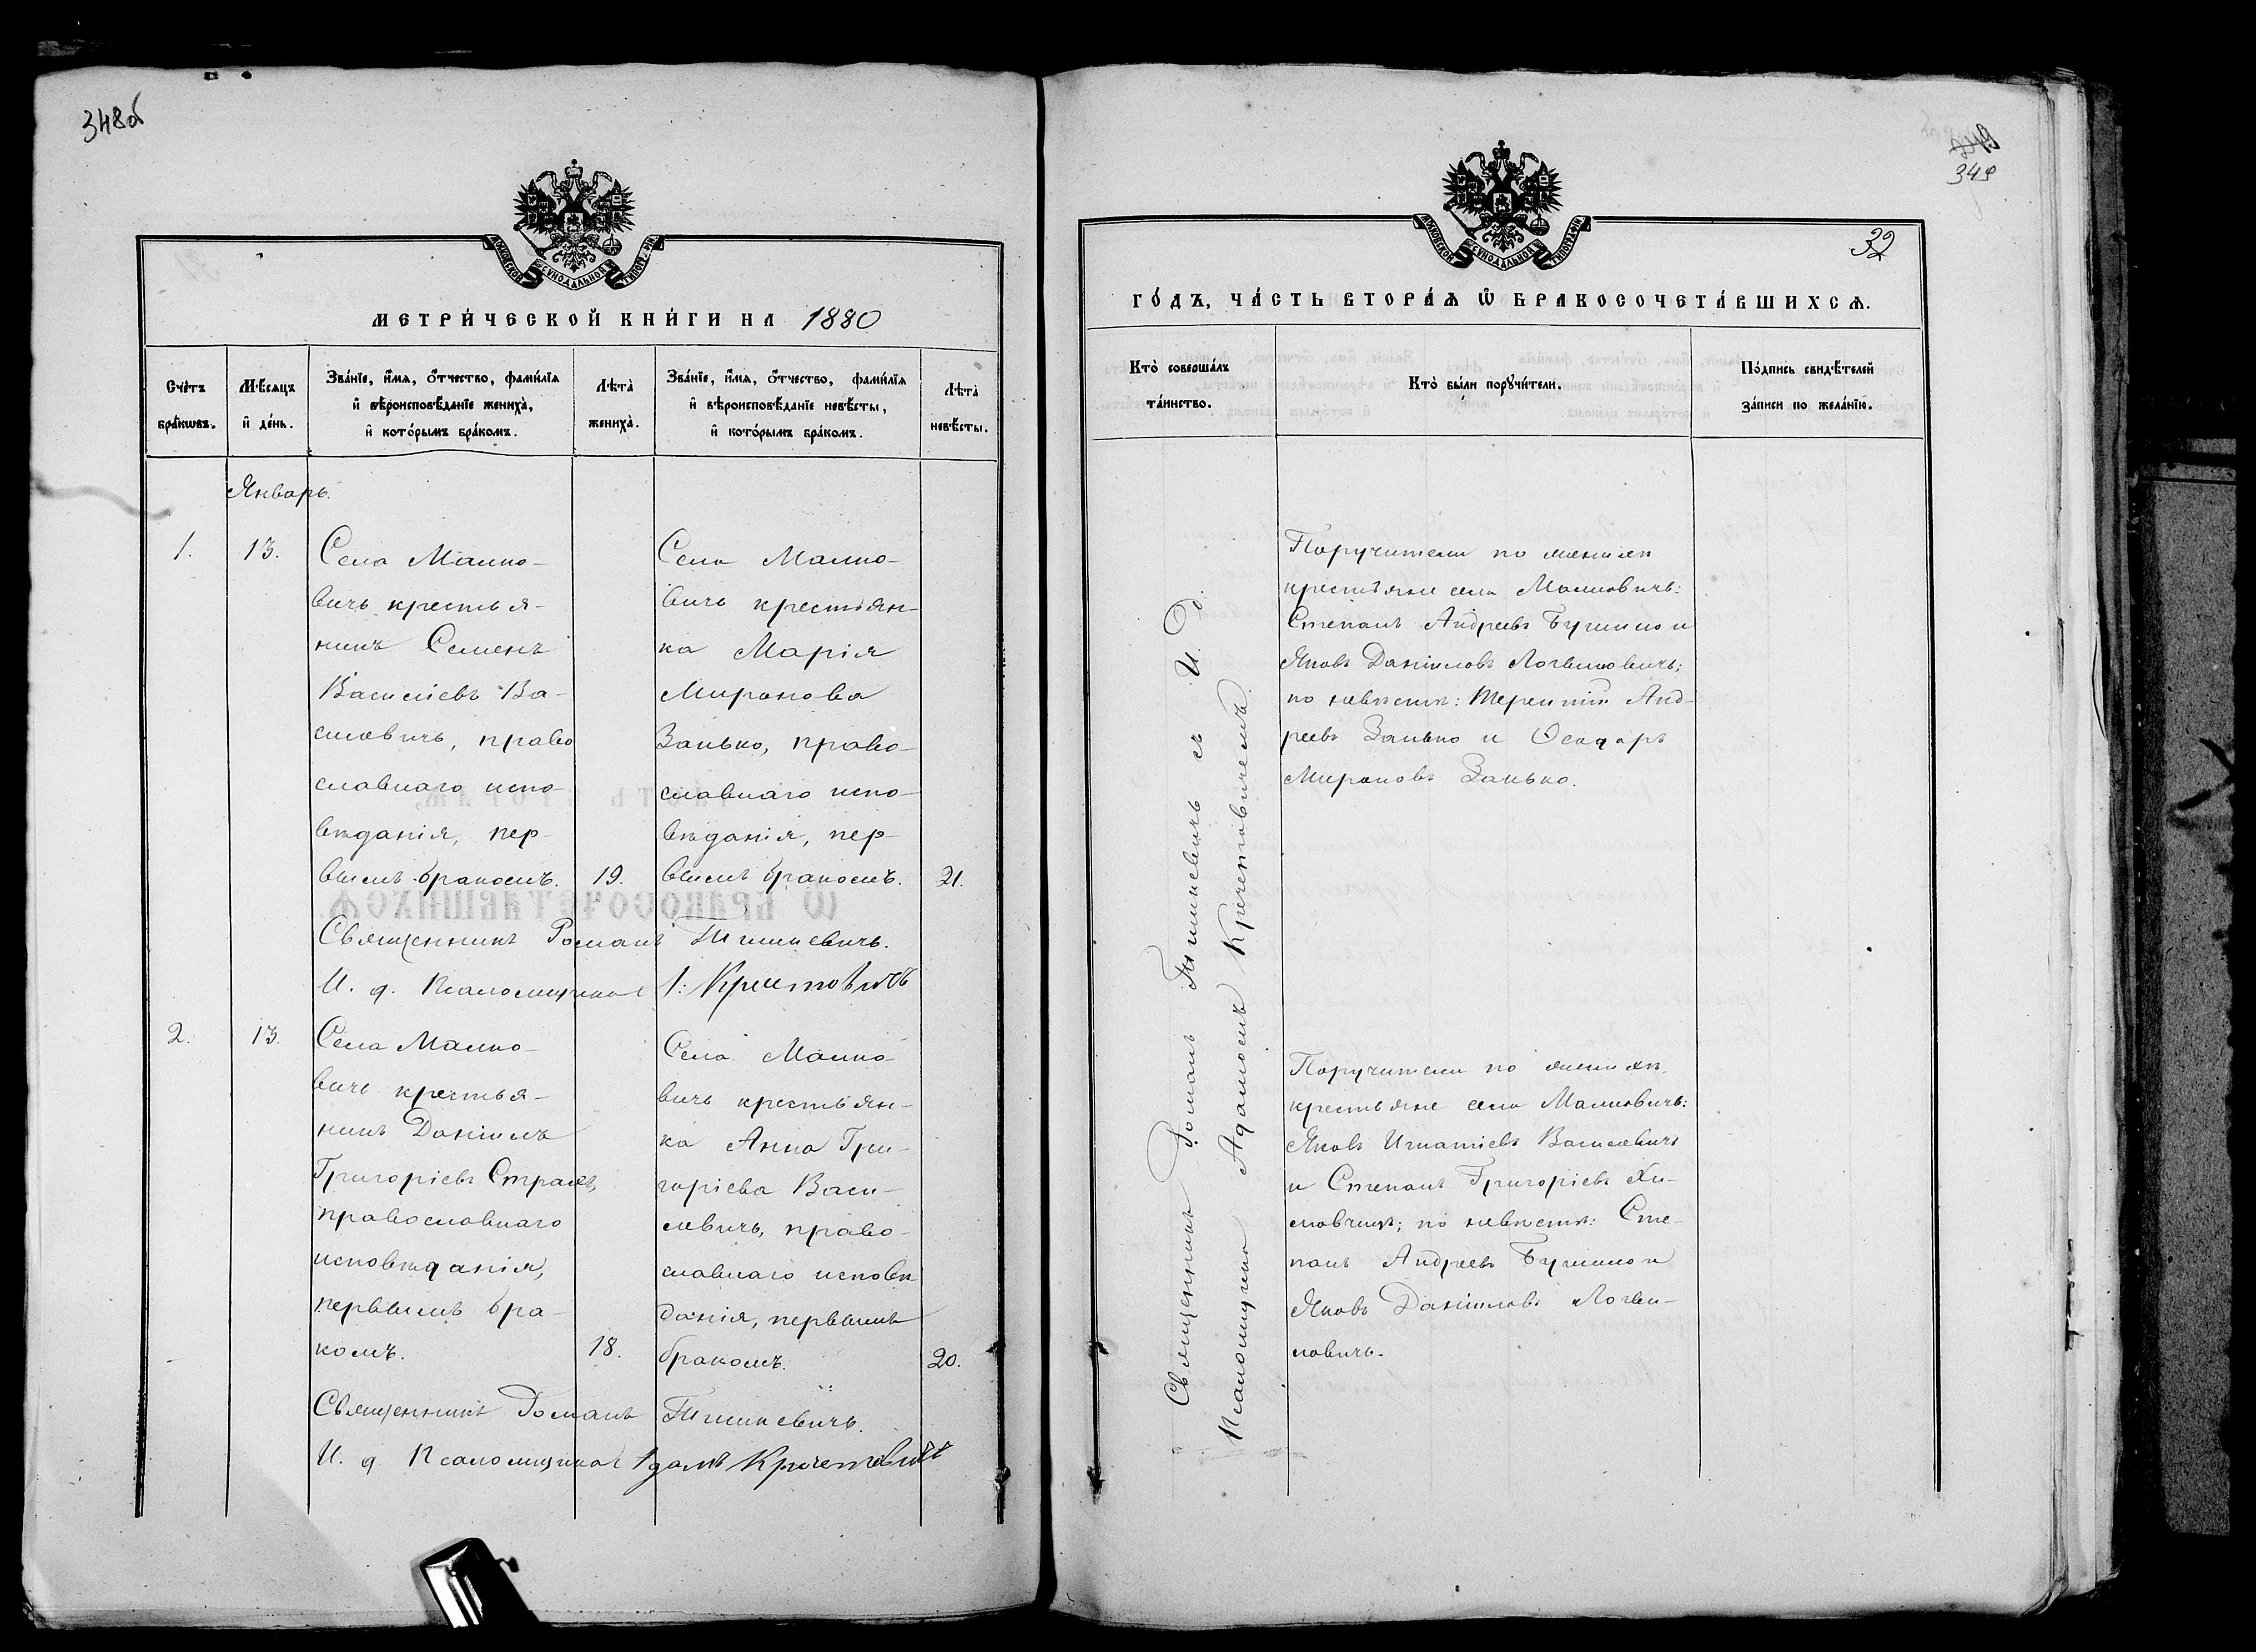 348об
МЕТРИ́ЧЕСКОЙ КНИ́ГИ НА 1880
Сче́тъ бра́кωвъ.
Мѣ́сяцъ и҆ де́нь.
Зва́нїе, и҆́мя, ѻ҆́тчество, фами́лїя и҆ вѣроисповѣ́данїе жениха̀, и҆ кото́рымъ бра́комъ.
Лѣта̀ жениха̀.
Зва́нїе, и҆́мя, ѻ҆́тчество, фами́лїя и҆ вѣроисповѣ́данїе невѣ́сты, и҆ кото́рымъ бра́комъ.
Лѣта̀ невѣ́сты.
Январь.
1.
13.
Села Малко-
вичъ крестья-
нинъ Семенъ
Василіевъ Ва-
силевичъ, право
славнаго испо-
вѣданія, пер-
вымъ бракомъ.
19.
Села Малко-
вичъ крестьян-
ка Марія
Миронова
Занько, право-
славнаго испо-
вѣданія, пер-
вымъ бракомъ.
21.
Священникъ Романъ Тишкевичъ.
И. д. Псаломщика
2.
13.
Села Малко-
вичъ крестья-
нинъ Даніилъ
Григоріевъ
православнаго
исповѣданія,
первымъ бра-
комъ.
18.
Села Малко-
вичъ крестьян-
ка Анна Гри-
горіева Васи-
левичъ, право-
славнаго исповѣ
данія, первымъ
бракомъ.
20.
Священникъ Романъ Тишкевичъ.
И. д. Псаломщика Адамъ Кречетовичъ
349
32
ГО́ДЪ, ЧА́СТЬ ВТОРА́Я Ѽ БРАКОСОЧЕТА́ВШИХСЯ.
Кто̀ соверша́лъ та́инство.
Кто̀ бы́ли порꙋчи́тели.
По́дпись свидѣ́телей за́писи по жела́нїю.
Священникъ Романъ Тишкевичъ съ И. д.
Псаломщика Адамомъ Кречетовичемъ.
Поручители по женихѣ
крестьяне села Малковичъ:
Степанъ Андреевъ и
Яковъ Даніиловъ Логвиновичъ;
по невѣстѣ: Терентій Анд-
реевъ Занько и Ѳеодоръ
Мироновъ Занько.
Поручители по женихѣ
крестьяне села Малковичъ:
Яковъ Игнатіевъ Василевичъ
и Степанъ Григоріевъ
по невѣстѣ: Сте-
панъ Андреевъ и
Яковъ Даніиловъ Логви-
новичъ.